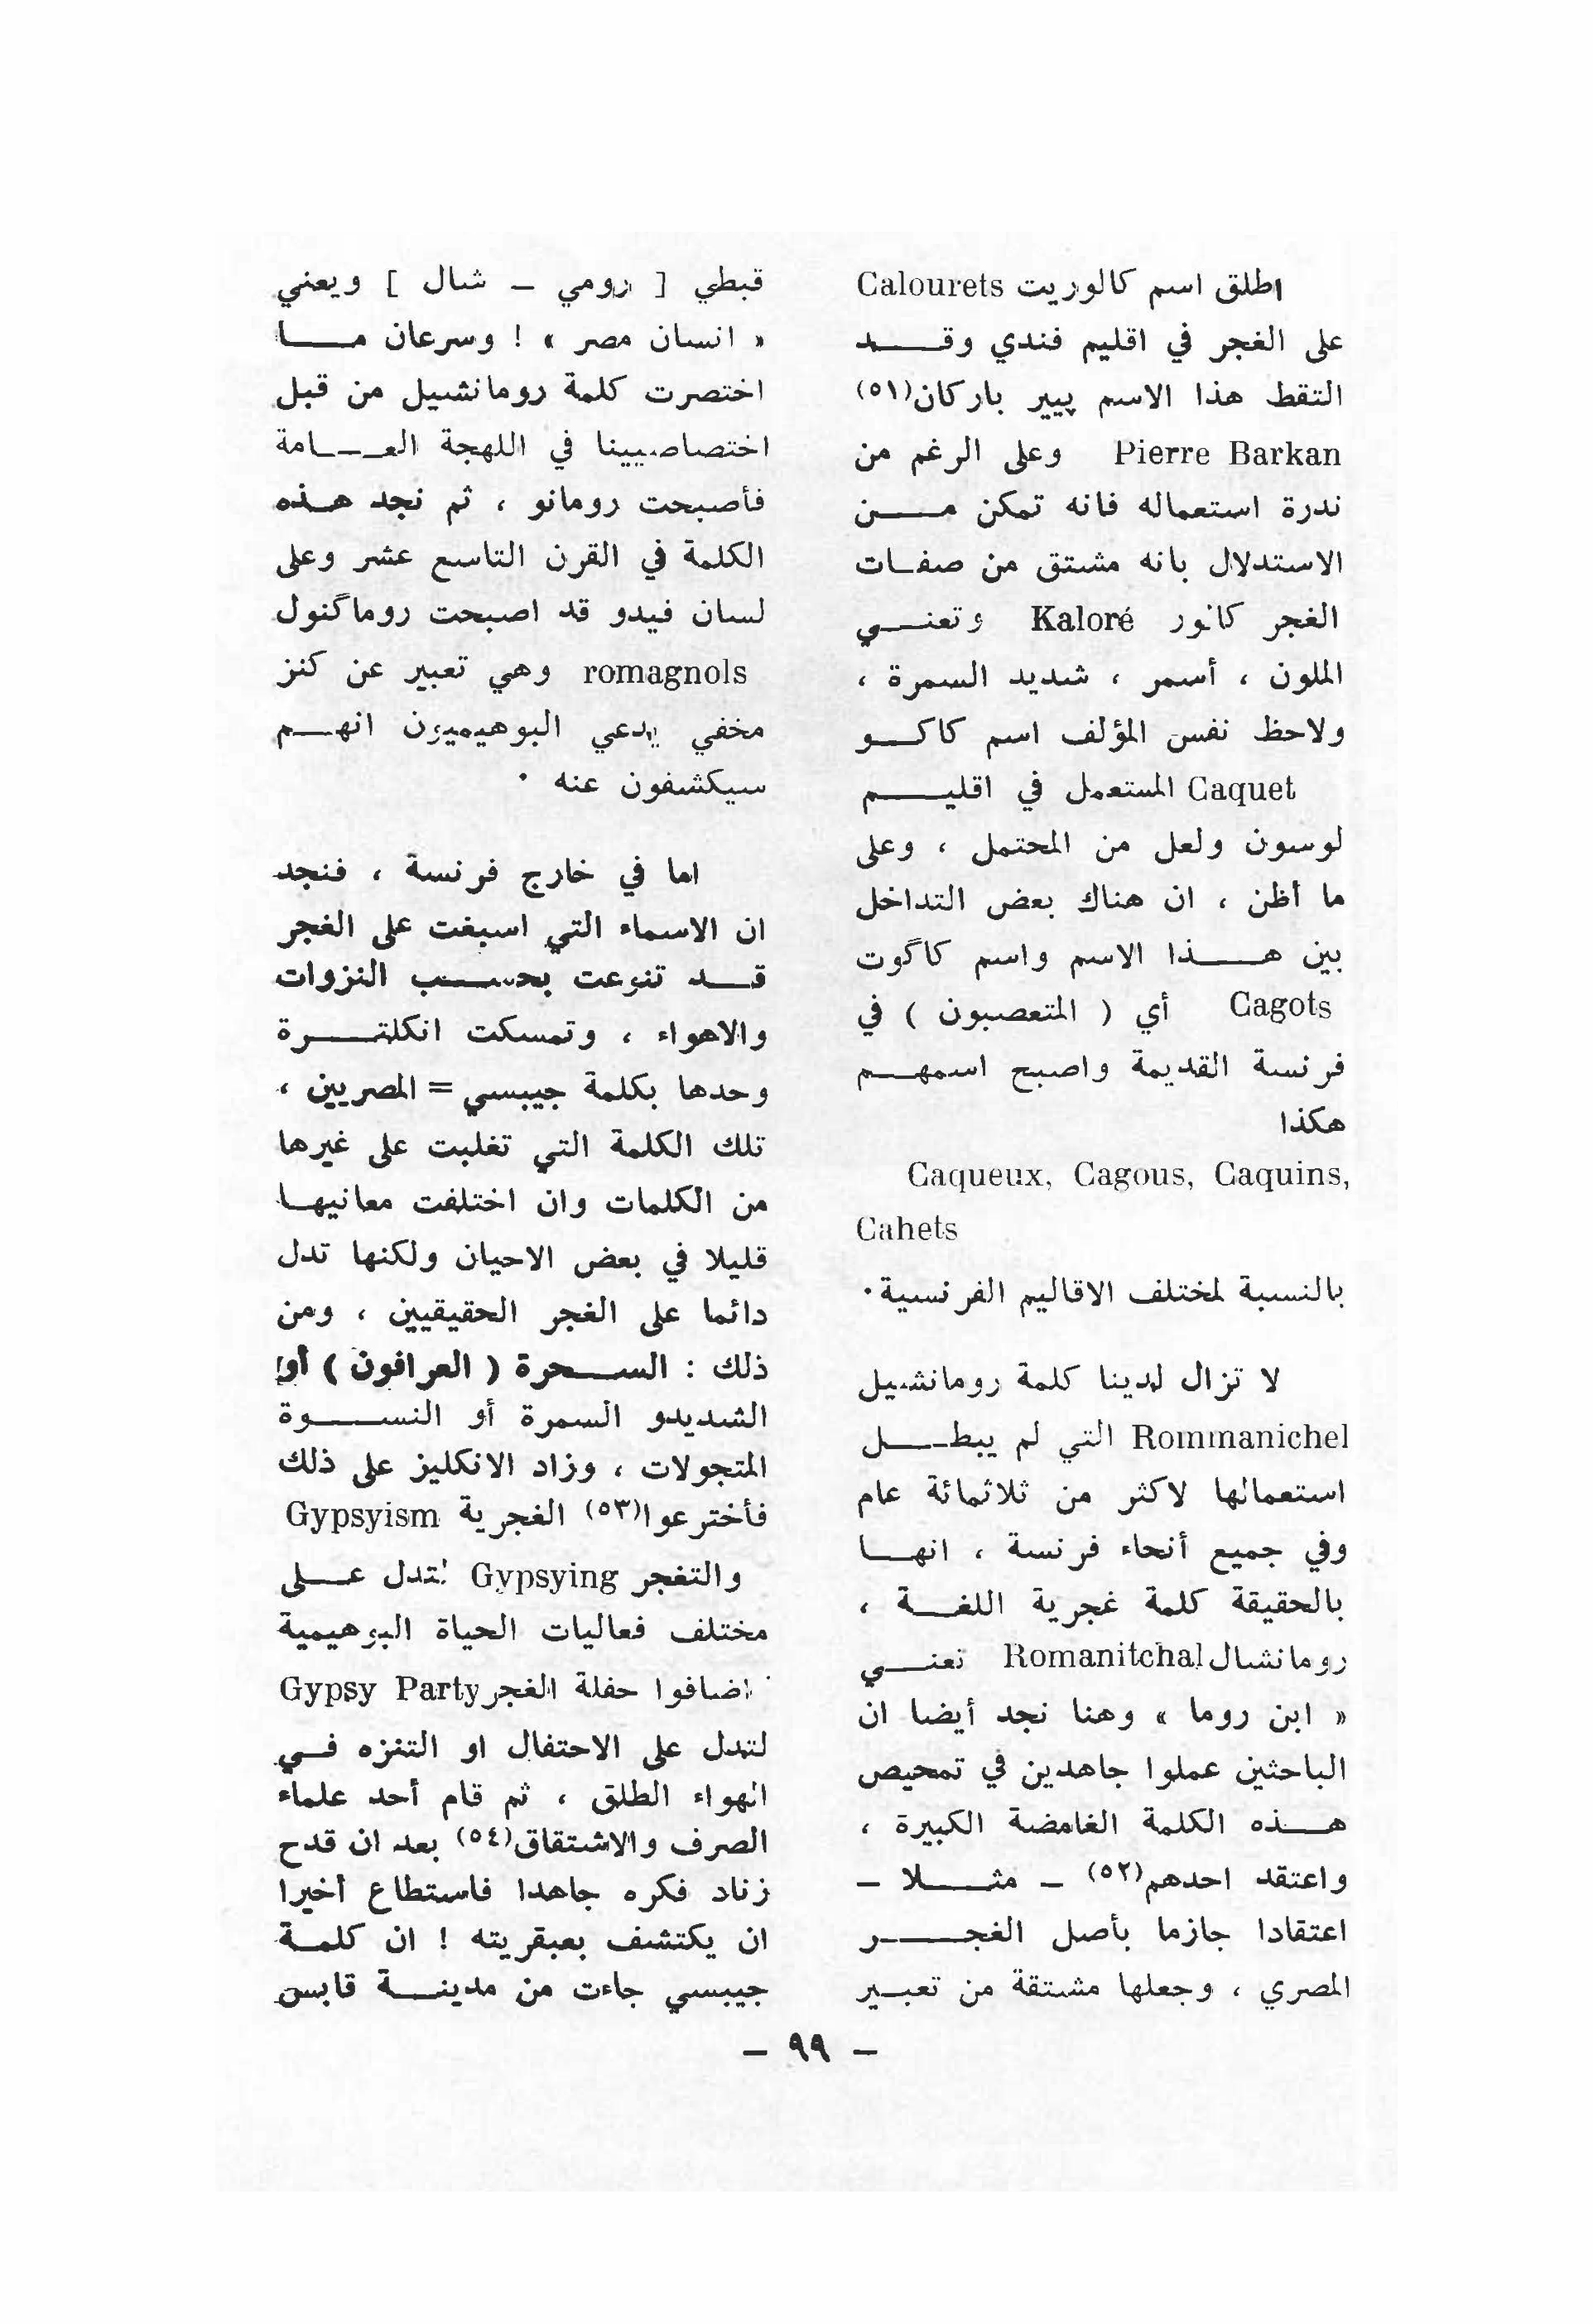 اطلق اسم كالوريت Calourets
على الغجر في اقليم فندي وقد
التقط هذا الاسم پيير باركان(٥١)
Pierre Barkan وعلى الرغم من
ندرة استعماله فانه تمكن من
الاستدلال بانه مشتق من صفات
الغجر كالور Kaloré وتعني
الملون ، أسمر ، شديد السمرة ،
ولاحظ نفس المؤلف اسم كاكو
Caquet المستعمل في اقليم
لوسون ولعل من المحتمل ، وعلى
ما أظن ، ان هناك بعض التداخل
بين هذا الاسم واسم كاگوت
Cagots أي ( المتعصبون ) في
فرنسة القديمة واصبح اسمهم
هكذا
Caqueux, Cagous, Caquins,
Cahets
بالنسبة لمختلف الاقاليم الفرنسية .
لا تزال لدينا كلمة رومانشيل
Rommanichel التي لم يبطل
استعمالها لاكثر من ثلاثمائة عام
وفي جميع أنحاء فرنسة ، انها
بالحقيقة كلمة غجرية اللغة ،
رومانشال Romanitchal تعني
« ابن روما » وهنا نجد أيضا ان
الباحثين عملوا جاهدين في تمحيص
هذه الكلمة الغامضة الكبيرة ،
واعتقد احدهم(٥٢) – مثلا –
اعتقادا جازما بأصل الغجر
المصري ، وجعلها مشتقة من تعبير
قبطي [ رومي – شال ] ويعني
« انسان مصر » ! وسرعان ما
اختصرت كلمة رومانشيل من قبل
اختصاصيينا في اللهجة العامة
فأصبحت رومانو ، ثم نجد هذه
الكلمة في القرن التاسع عشر وعلى
لسان فيدو قد اصبحت روماگنول
romagnols وهي تعبير عن كنز
مخفي يدعي البوهيميون انهم
سيكشفون عنه .
اما في خارج فرنسة ، فنجد
ان الاسماء التي اسبغت على الغجر
قد تنوعت بحسب النزوات
والاهواء ، وتمسكت انكلترة
وحدها بكلمة جيبسي = المصريين ،
تلك الكلمة التي تغلبت على غيرها
من الكلمات وان اختلفت معانيها
قليلا في بعض الاحيان ولكنها تدل
دائما على الغجر الحقيقيين ، ومن
ذلك : السحرة ( العرافون ) أو
الشديدو السمرة أو النسوة
المتجولات ، وزاد الانكليز على ذلك
فأخترعوا(٥٣) الغجرية Gypsyism
والتغجر Gypsying لتدل على
مختلف فعاليات الحياة البوهيمية
اضافوا حفلة الغجر Gypsy Party
لتدل على الاحتفال او التنزه في
الهواء الطلق ، ثم قام أحد علماء
الصرف والاشتقاق(٥٤) بعد ان قدح
زناد فكره جاهدا فاستطاع أخيرا
ان يكتشف بعبقريته ! ان كلمة
جيبسي جاءت من مدينة قابس
– ٩٩ –